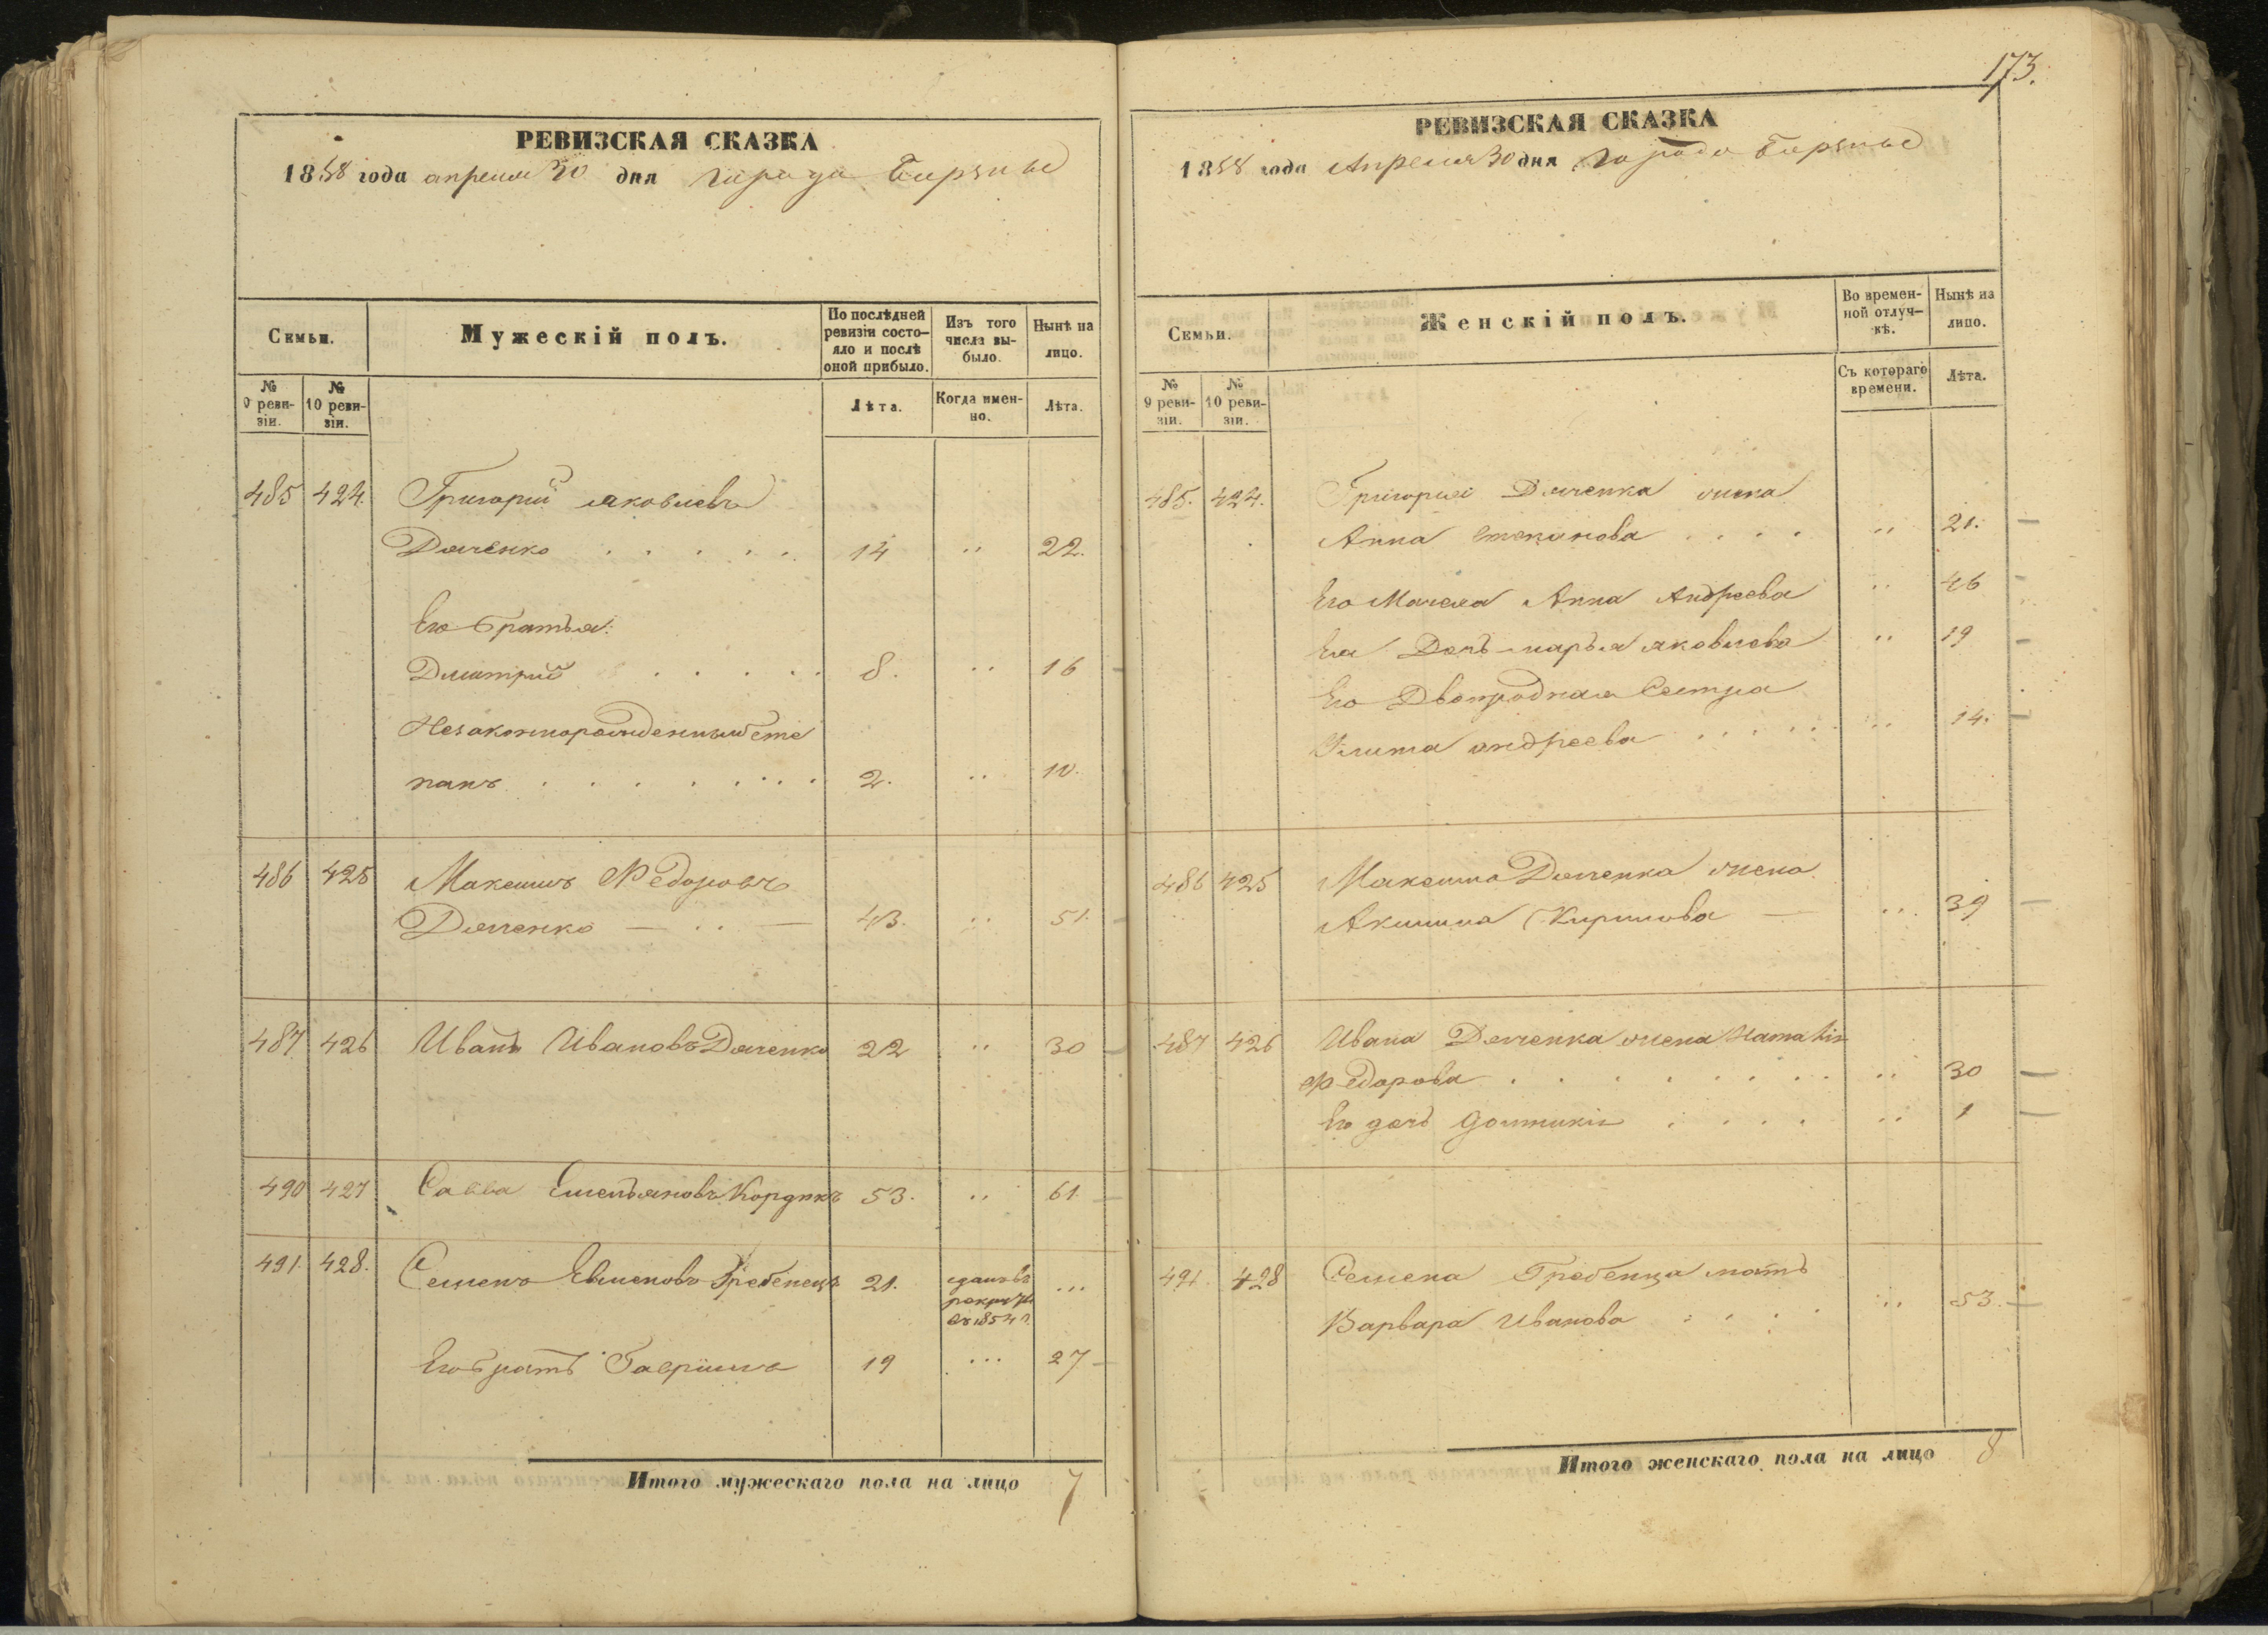 РЕВИЗСКАЯ СКАЗКА
1858 года апреля 30 дня города
Семьи.
Мужескій полъ.
По послѣдней ревизіи состо-
яло и послѣ
оной прибыло.
Изъ того
числа вы-
было.
Нынѣ на
лицо.
№
9 реви-
зіи.
№
10 реви-
зіи.
Лѣта.
Когда имен-
но.
Лѣта.
485 424. Григорій яковлевъ
Дяченко . . . . . 14 „ 22.
Его братья:
Дмитрий . . . . . 8. „ 16
Незаконнорожденный сте
панъ . . . . . . . . 2. „ 10.
486 425 Максимъ Федоровъ
Дяченко — „ — 43. „ 51.
487 426 Иванъ Ивановъ Дяченко 22 „ 30
490 427 Савва Емельяновъ Кордикъ 53. „ 61.
491. 428. Семенъ Евменовъ Гребенецъ 21. сданъ въ
рекруты
въ 1854 г. ...
Его братъ Гаврило 19 ... 27
Итого мужескаго пола на лицо 7
173.
РЕВИЗСКАЯ СКАЗКА
1858 года Апреля 30 дня города
Семьи.
Женскій полъ.
Во времен-
ной отлуч-
кѣ.
Нынѣ на
лицо.
№
9 реви-
зіи.
№
10 реви-
зіи.
Съ котораго
времени.
Лѣта.
485. 424. Григорія Дяченка жена
Анна степанова . . . . „ 21.
Его Мачеха Анна Андреева „ 46
Ея Дочь марья яковлева „ 19
Его Двоюродная Сестра
Улита андреева . . . . . . „ 14.
486 425 Максима Дяченка жена
Акилина Кирилова — „ 39
487 426 Ивана Дяченка жена Наталія
Федорова . . . . . . . . „ 30
Его дочь . . . . „ 1
491. 428 Семена Гребенца мать
Варвара Иванова „ 53.
Итого женскаго пола на лицо 8